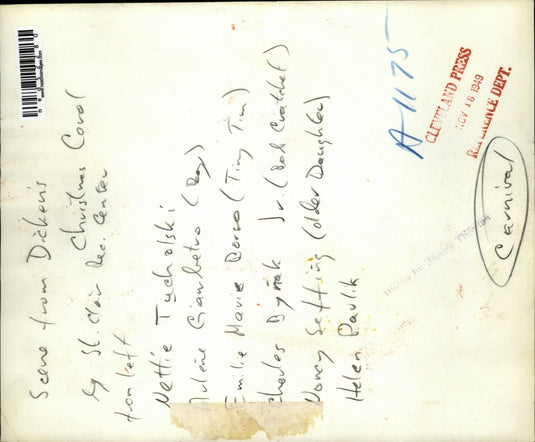 Scene from Dickens
Christmas Carol
by St. Clair Rec. Center
from left
Nettie Tucholski
Arlene Giambetro (Boy)
Emilie Marie Dorso (Tiny Tim)
Charles Dyrak Jr. (Bob Cratchet)
Nancy Setting (Older Daughter)
Helen Pavlik
A-1175
CLEVELAND PRESS
NOV 18 1949
REFERENCE DEPT.
Carnival